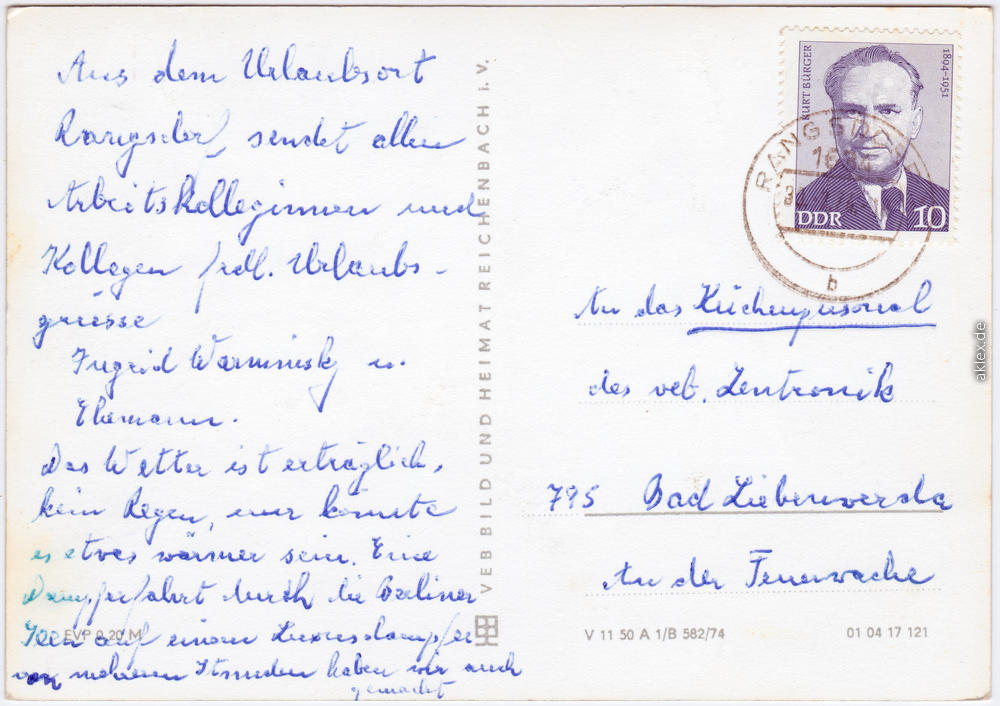 Aus dem Urlaubsort
Rangsdorf, sendet allen
Arbeitskolleginnen und
Kollegen frdl. Urlaubs-
grüsse
Ingrid u.
Ehemann.
Das Wetter ist erträglich,
kein Regen, nur könnte
es etwas wärmer sein. Eine
Dampferfahrt durch die Berliner
Seen auf einem Luxusdampfer
von mehreren Stunden haben wir auch
gemacht
EVP 0,20 M
VEB BILD UND HEIMAT REICHENBACH i. V.
KURT BÜRGER
1894-1951
DDR 10
RANGS
b
An das Küchenpersonal
des veb. Zentronik
795 Bad Liebenwerda
An der Feuerwache
V 11 50 A 1/B 582/74
01 04 17 121
aklex.de